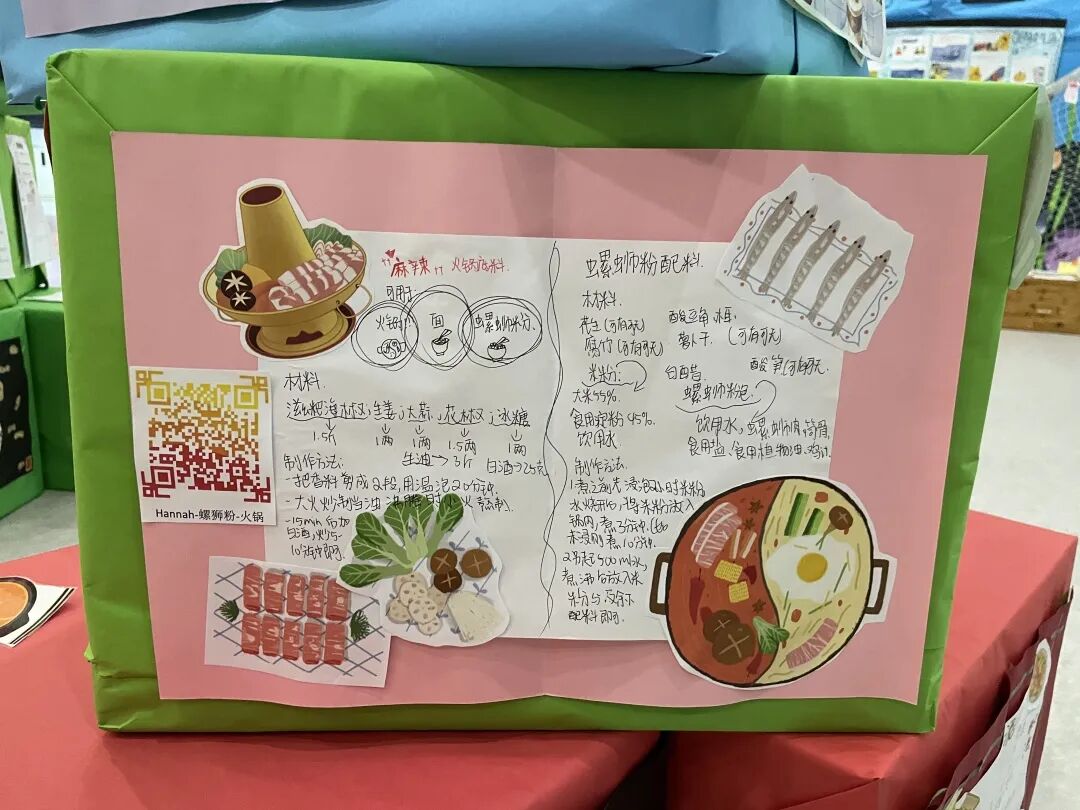 "麻辣" 火锅底料.
可用于:
火锅 面 螺蛳粉.
材料.
滋粑海椒、生姜、大蒜、花椒、冰糖
1.5斤 1两 1两 1.5两 1两
生油→3斤 白酒→25克
制作方法:
-把香料剪成2段,用温泡20分钟.
-15min后加
白酒,炒5-
10
Hannah-螺狮粉-火锅
螺蛳粉配料.
材料.
花生(可有可无) 酸豆角
腐竹(可有可无) 萝卜干. (可有可无)
米粉: 白醋. 酸笋(可有可无.
大米55%. 螺蛳粉包
食用淀粉45%. 饮用水,螺蛳肉,筒骨,
饮用水 食用盐,食用植物油,鸡汁
制作方法.
1煮之前先浸泡2小时米粉
水烧开后,将米粉放入
锅内,煮3分钟.
来浸则煮10分钟.
500ml水,
煮沸后放入米
粉与
配料即可.